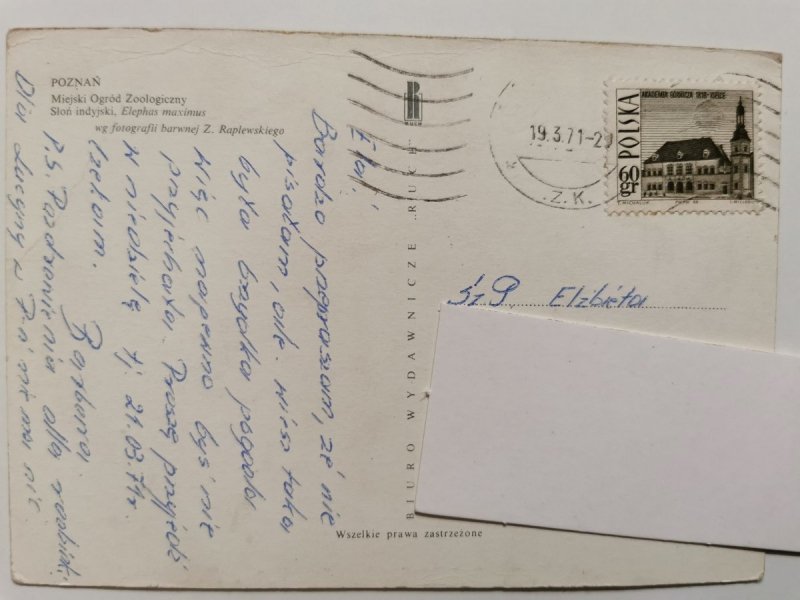 POZNAŃ
Miejski Ogród Zoologiczny
Słoń indyjski, Elephas maximus
wg fotografii barwnej Z. Raplewskiego
Ela!
Bardzo przepraszam, że nie
pisałam, ale wiesz taka
była brzydka pogoda
więc napewno byś nie
przyjechała. Proszę przyjedź
w niedzielę tj 21.03.71r
Czekam.
Barbara.
P.S. Pozdrowienia dla rodzinki.
Dla
RUCH
BIURO WYDAWNICZE „RUCH”
Wszelkie prawa zastrzeżone
19.3.71-20
Z.K.
AKADEMIA GÓRNICZA 1816 KIELCE
POLSKA
60 gr
Sz.P. Elżbieta